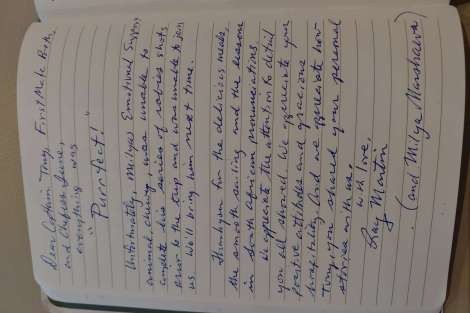 Dear Captain Tony, First Mate Beth,
and Chefess Jeune,
everything was
"Purrrfect!"
Unfortunately, Milya's Emotional Support
animal, chewy, was unable to
complete his series of rabies shots
prior to the trip and was unable to join
us. We'll bring him next time.
Thankyou for the delicious meals,
the smooth sailing and the lessons
in South African pronunciations.
We appreciate the attention to detail
you all showed. We appreciate your
positive attitudes and gracious
hospitality. And we appreciate how
Tony, you shared your personal
stories with us.
With love,
Ray Martin
(and Milya Marshalva)